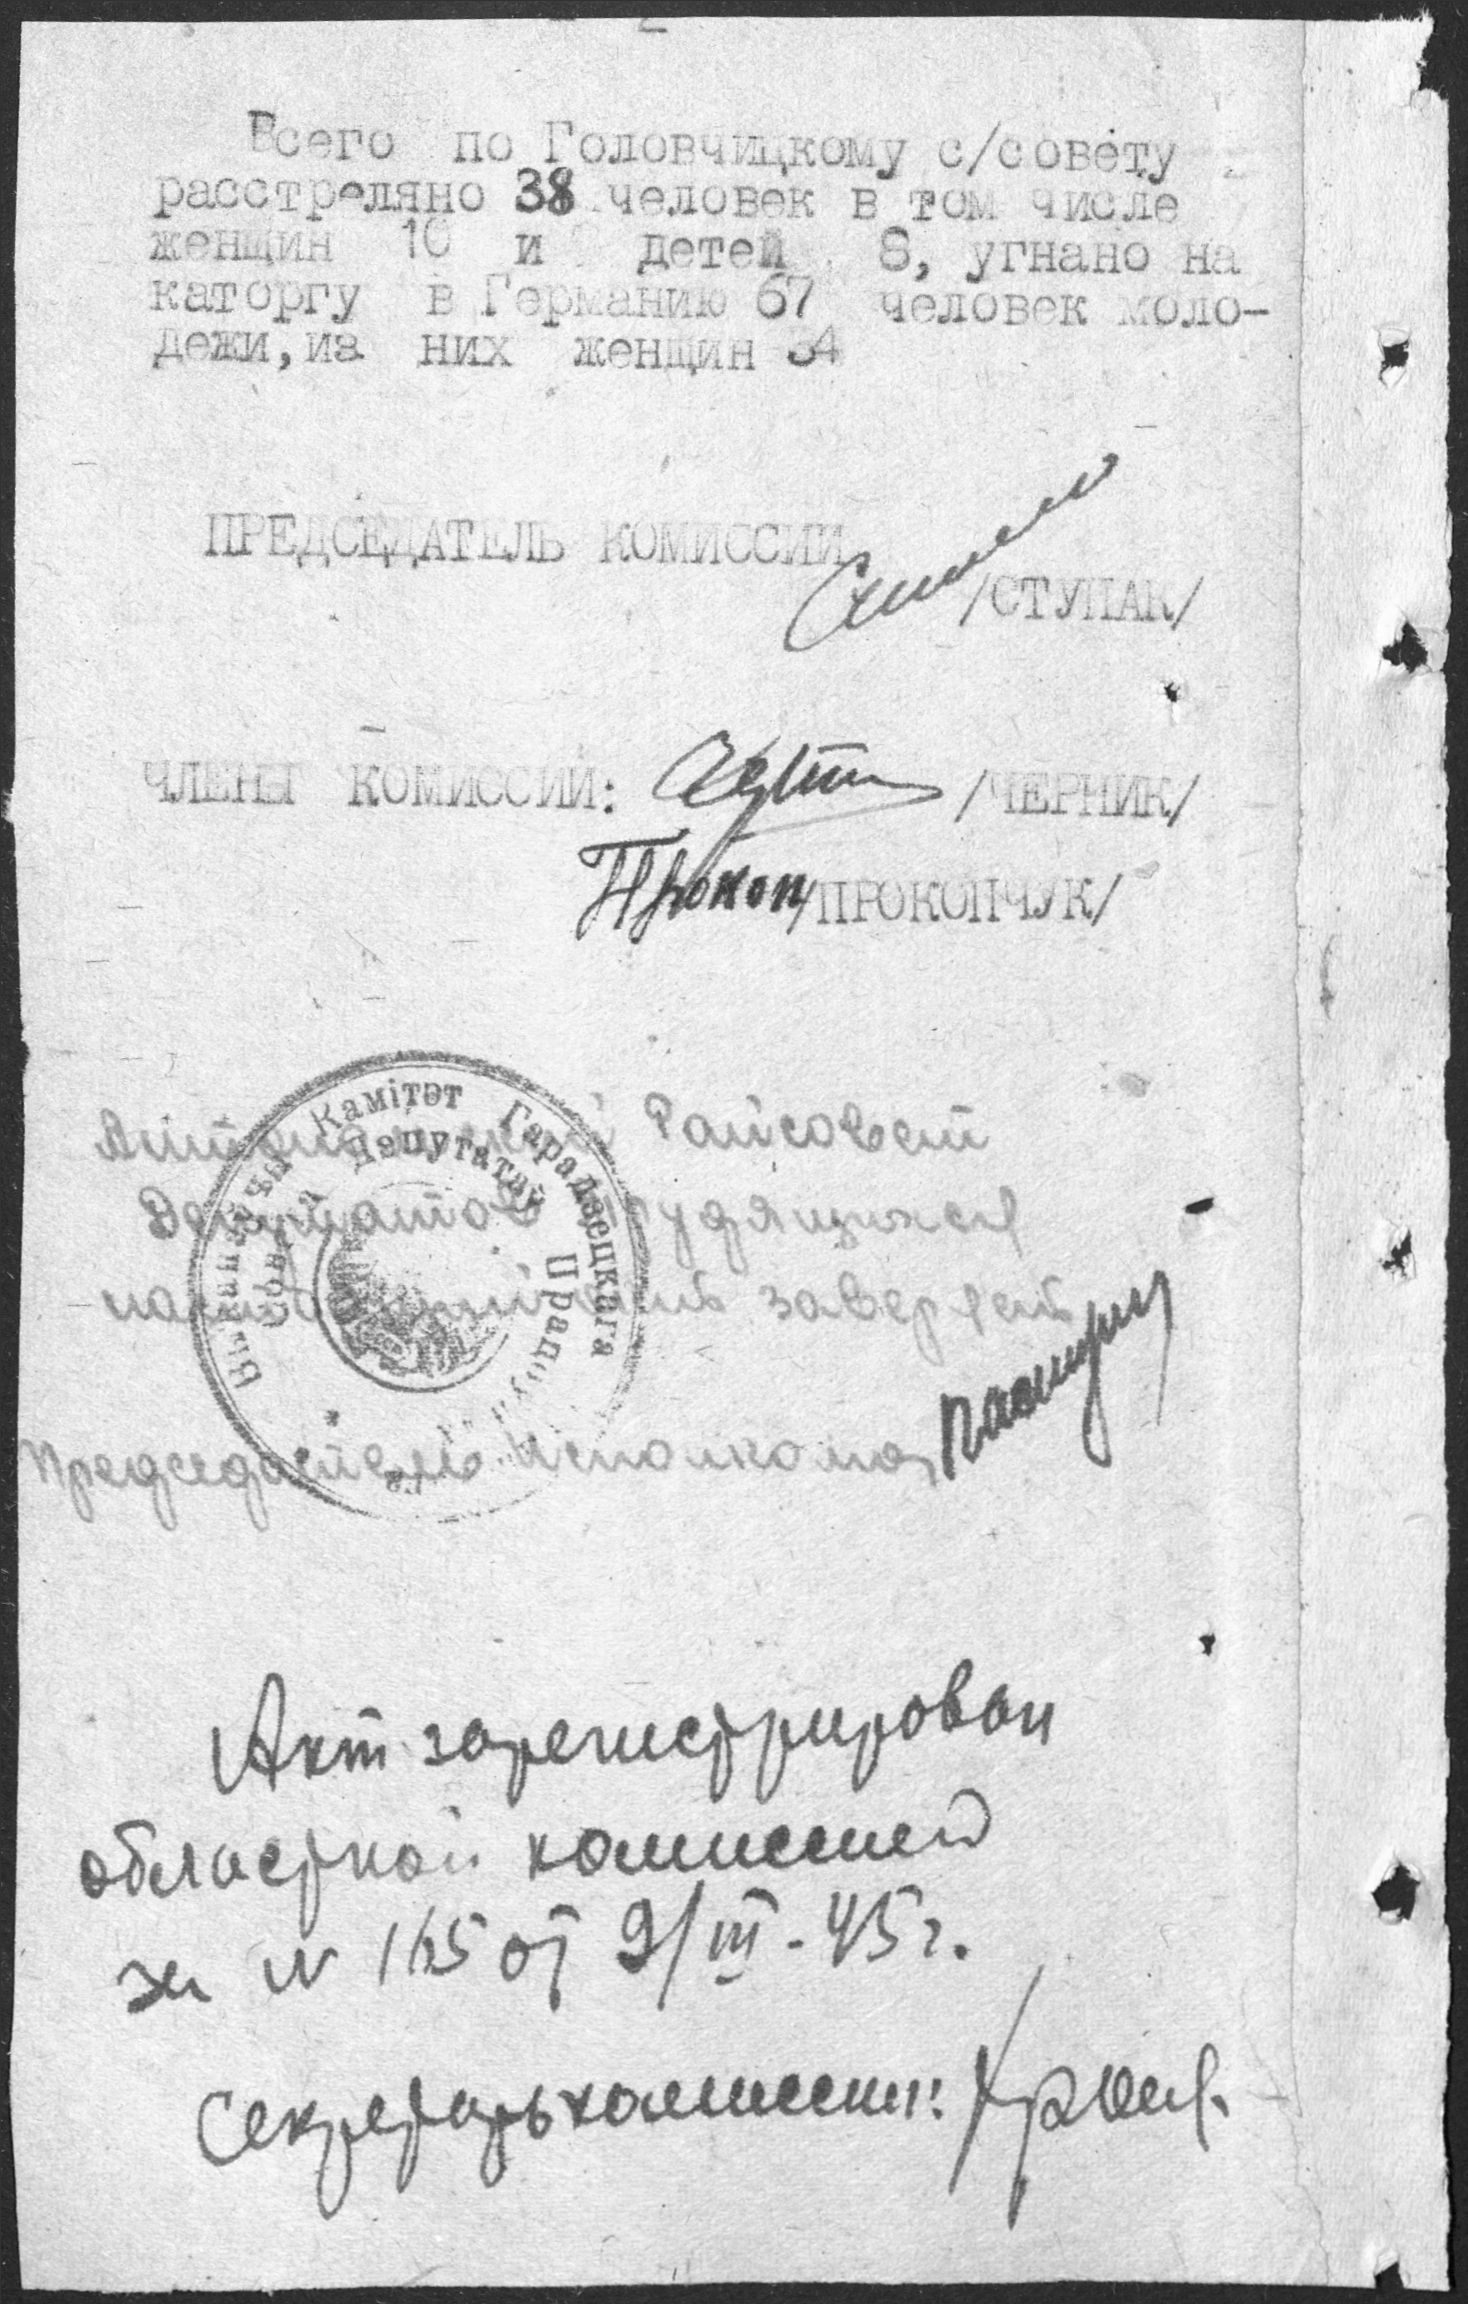 Всего по Головчицкому с/совету
расстреляно 38 человек в том числе
женщин 10 и детей 8, угнано на
каторгу в Германию 67 человек моло-
дежи, из них женщин 34
ПРЕДСЕДАТЕЛЬ КОМИССИИ
/СТУПАК/
ЧЛЕНЫ КОМИССИИ: /ЧЕРНИК/
Прокоп /ПРОКОПЧУК/
Выканаўчы Камітэт Гарадзецкага
Дэпутатаў Працоўных
Райсовет
Депутатов Трудящихся
заверяет
Председатель Исполкома
Акт зарегистрирован
областной комиссией
за N 165 от 9/III-45 г.
Секретарь комиссии: